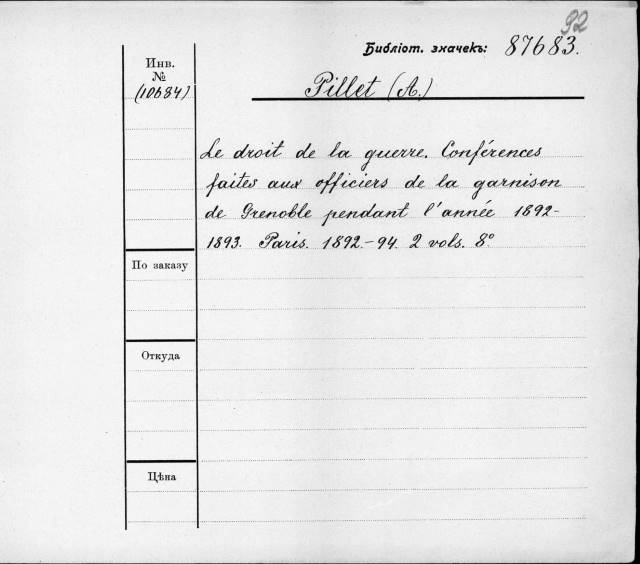 92
Библіот. значекъ: 87683.
Инв.
№
(10684)
Pillet (A.)
Le droit de la guerre. Conférences
faites aux officiers de la garnison
de Grenoble pendant l'année 1892-
1893. Paris. 1892.-94. 2 vols. 8°
По заказу
Откуда
Цѣна